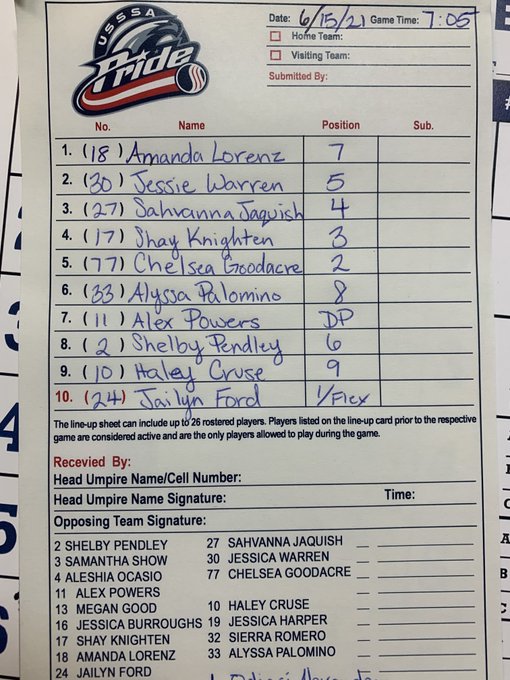 USSSA
Pride
Date: 6/15/21 Game Time: 7:05
Home Team:
Visiting Team:
Submitted By:
No. Name Position Sub.
1. (18) Amanda Lorenz 7
2. (30) Jessie Warren 5
3. (27) Sahvanna Jaquish 4
4. (17) Shay Knighten 3
5. (77) Chelsea Goodacre 2
6. (33) Alyssa Palomino 8
7. (11) Alex Powers DP
8. (2) Shelby Pendley 6
9. (10) Haley Cruse 9
10. (24) Jailyn Ford 1/Flex
The line-up sheet can include up to 26 rostered players. Players listed on the line-up card prior to the respective
game are considered active and are the only players allowed to play during the game.
Recevied By:
Head Umpire Name/Cell Number:
Head Umpire Name Signature: Time:
Opposing Team Signature:
2 SHELBY PENDLEY 27 SAHVANNA JAQUISH
3 SAMANTHA SHOW 30 JESSICA WARREN
4 ALESHIA OCASIO 77 CHELSEA GOODACRE
11 ALEX POWERS
13 MEGAN GOOD 10 HALEY CRUSE
16 JESSICA BURROUGHS 19 JESSICA HARPER
17 SHAY KNIGHTEN 32 SIERRA ROMERO
18 AMANDA LORENZ 33 ALYSSA PALOMINO
24 JAILYN FORD